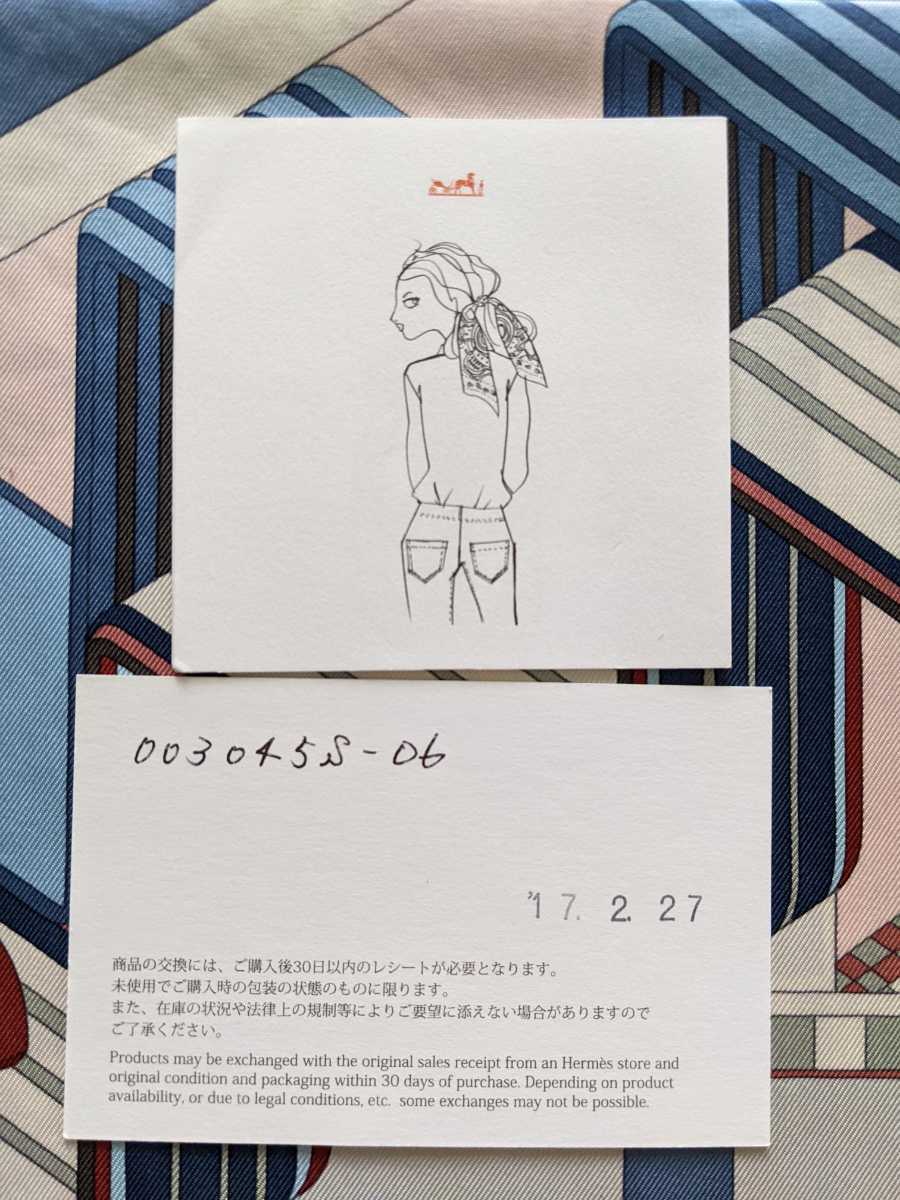 003045S-06
'17. 2. 27
商品の交換には、ご購入後30日以内のレシートが必要となります。
未使用でご購入時の包装の状態のものに限ります。
また、在庫の状況や法律上の規制等によりご要望に添えない場合がありますので
ご了承ください。
Products may be exchanged with the original sales receipt from an Hermès store and
original condition and packaging within 30 days of purchase. Depending on product
availability, or due to legal conditions, etc. some exchanges may not be possible.